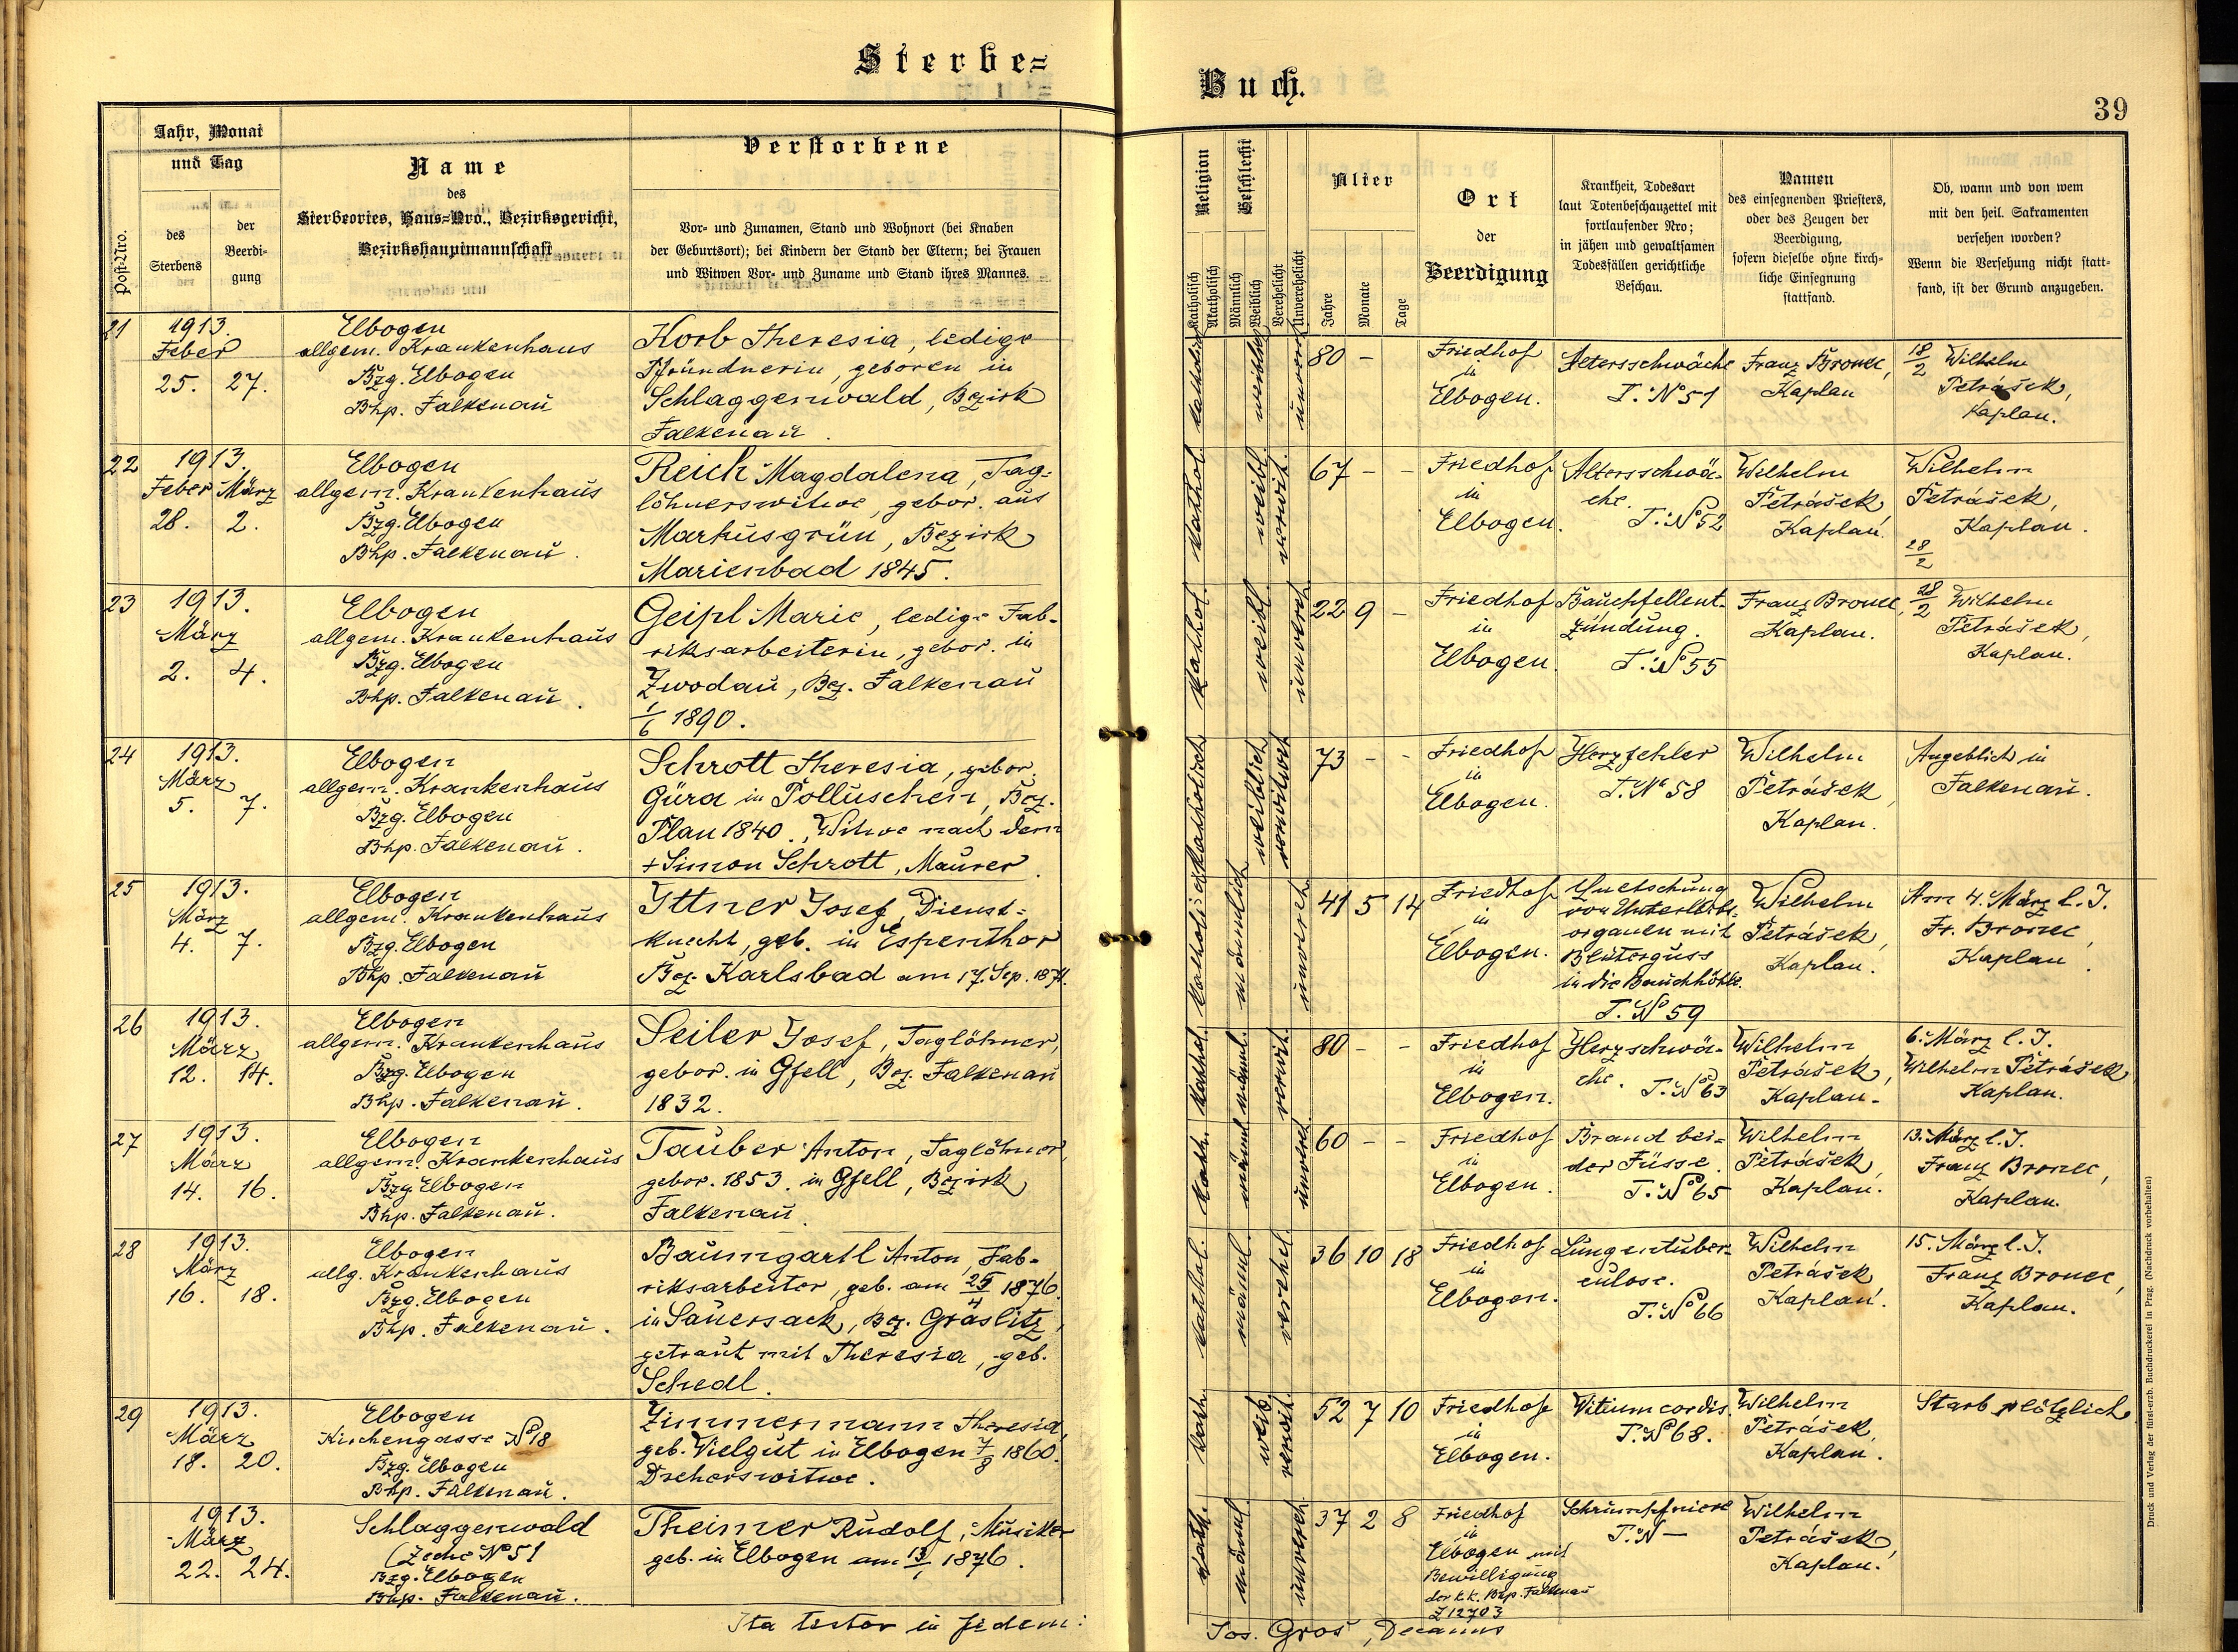 Sterbe=
Buch.
39
Post-Nro.
Jahr, Monat
und Tag
des
Sterbens
der
Beerdi-
gung
Name
des
Sterbeortes, Haus=Nro., Bezirksgericht,
Bezirkshauptmannschaft
Verstorbene
Vor- und Zunamen, Stand und Wohnort (bei Knaben
der Geburtsort); bei Kindern der Stand der Eltern; bei Frauen
und Witwen Vor- und Zuname und Stand ihres Mannes.
Religion
Katholisch
Akatholisch
Geschlecht
Männlich
Weiblich
Verehelicht
Unverehelicht
Alter
Jahre
Monate
Tage
Ort
der
Beerdigung
Krankheit, Todesart
laut Totenbeschauzettel mit
fortlaufender Nro;
in jähen und gewaltsamen
Todesfällen gerichtliche
Beschau.
Namen
des einsegnenden Priesters,
oder des Zeugen der
Beerdigung,
sofern dieselbe ohne kirch-
liche Einsegnung
stattfand.
Ob, wann und von wem
mit den heil. Sakramenten
versehen worden?
Wenn die Versehung nicht statt-
fand, ist der Grund anzugeben.
21
1913.
Feber
25. 27.
Elbogen
allgem. Krankenhaus
Bzg. Elbogen
Bhp. Falkenau
Korb Theresia, ledige
Pfründnerin, geboren in
Schlaggenwald, Bezirk
Falkenau.
katholisch
weiblich
unvereh
80 -
Friedhof
in
Elbogen.
Altersschwäche
T. No 51
Franz Bronec,
Kaplan
18/2 Wilhelm
Petrášek,
Kaplan.
22
1913.
Feber März
28. 2.
Elbogen
allgem. Krankenhaus
Bzg. Elbogen
Bhp. Falkenau.
Reich Magdalena, Tag-
löhnerswitwe, gebor. aus
Markusgrün, Bezirk
Marienbad 1845.
kathol.
weibl.
verwit.
67 - -
Friedhof
in
Elbogen.
Altersschwä-
che.
T. No 52
Wilhelm
Petrášek,
Kaplan.
Wilhelm
Petrášek,
Kaplan.
28/2
23
1913.
März
2. 4.
Elbogen
allgem. Krankenhaus
Bzg. Elbogen
Bhp. Falkenau.
Geipl Marie, ledige Fab-
riksarbeiterin, gebor. in
Zwodau, Bez. Falkenau
1/6 1890.
kathol.
weibl.
unvereh
22 9 -
Friedhof
in
Elbogen.
Bauchfellent-
zündung.
T. No 55
Franz Bronec,
Kaplan.
28/2 Wilhelm
Petrášek,
Kaplan.
24
1913.
März
5. 7.
Elbogen
allgem. Krankenhaus
Bzg. Elbogen
Bhp. Falkenau.
Schrott Theresia, gebor.
Güra in Polluschen, Bez.
Plan 1840., Witwe nach dem
+ Simon Schrott, Maurer.
katholisch
weiblich
verwitwet
73 - -
Friedhof
in
Elbogen.
Herzfehler
T. No 58
Wilhelm
Petrášek,
Kaplan.
Angeblich in
Falkenau.
25
1913.
März
4. 7.
Elbogen
allgem. Krankenhaus
Bzg. Elbogen
Bhp. Falkenau
Ittner Josef, Dienst-
knecht, geb. in Espenthor
Bez. Karlsbad am 17. Sep. 1871.
katholisch
männlich
unvereh
41 5 14
Friedhof
in
Elbogen.
Quetschung
von Unterleibs-
organen mit
Bluterguss
in die Bauchhöhle.
T. No 59
Wilhelm
Petrášek,
Kaplan.
Am 4. März l. J.
Fr. Bronec,
Kaplan.
26
1913.
März
12. 14.
Elbogen
allgem. Krankenhaus
Bzg. Elbogen
Bhp. Falkenau.
Seiler Josef, Taglöhner,
gebor. in Gfell, Bez. Falkenau
1832.
kathol.
männl.
verwit.
80 - -
Friedhof
in
Elbogen.
Herzschwä-
che.
T. No 63
Wilhelm
Petrášek,
Kaplan.
6. März l. J.
Wilhelm Petrášek
Kaplan.
27
1913.
März
14. 16.
Elbogen
allgem. Krankenhaus
Bzg. Elbogen
Bhp. Falkenau.
Tauber Anton, Taglöhner,
gebor. 1853. in Gfell, Bezirk
Falkenau.
kath.
männl
unvereh.
60 - -
Friedhof
in
Elbogen.
Brand bei-
der Füsse.
T. No 65
Wilhelm
Petrášek,
Kaplan.
13. März l. J.
Franz Bronec,
Kaplan.
28
1913.
März
16. 18.
Elbogen
allg. Krankenhaus
Bzg. Elbogen
Bhp. Falkenau.
Baumgartl Anton, Fab-
riksarbeiter, geb. am 25/4 1876.
in Sauersack, Bez. Graslitz,
getraut mit Theresia, geb.
Schedl.
kathol.
männl.
verehel.
36 10 18
Friedhof
in
Elbogen.
Lungentuber-
culose.
T. No 66
Wilhelm
Petrášek
Kaplan.
15. März l. J.
Franz Bronec,
Kaplan.
29
1913.
März
18. 20.
Elbogen
Kirchengasse No 18
Bzg. Elbogen
Bhp. Falkenau.
Zimmermann Theresia,
geb. Vielgut in Elbogen 7/8 1860.
Drehers­witwe.
kath.
weib.
verwit.
52 7 10
Friedhof
in
Elbogen.
Vitium cordis.
T. No 68.
Wilhelm
Petrášek,
Kaplan.
Starb plötzlich
1913.
März
22. 24.
Schlaggenwald
(Zeche No 51
Bzg. Elbogen
Bhp. Falkenau.
Theimer Rudolf, Musiker
geb. in Elbogen am 13/1 1876.
kath.
männl.
unvereh.
37 2 8
Friedhof
in
Elbogen mit
Bewilligung
der k.k. Bhp. Falkenau
Z 12703
Schrumpfniere
T. N —
Wilhelm
Petrášek,
Kaplan.
Ita testor in fidem:
Jos. Gros, Decanus
Druck und Verlag der fürst-erzb. Buchdruckerei in Prag. (Nachdruck vorbehalten)